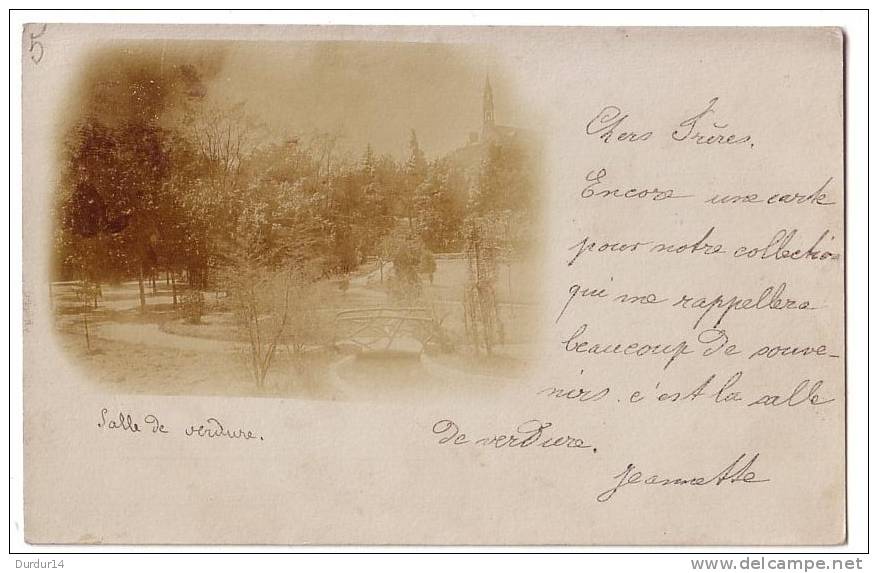 5
Chers Frères.
Encore une carte
pour notre collectio-
qui me rappellera
beaucoup de souve-
nirs. c'est la salle
de verdure.
Jeannette
Salle de verdure.
Durdur14
www.delcampe.net